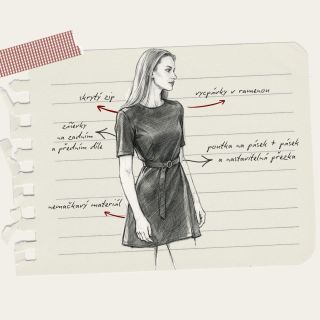 skrytý zip
vycpávky v ramenou
záševky
na zadním
a předním díle
poutka na pásek + pásek
a nastavitelná přezka
nemačkavý materiál